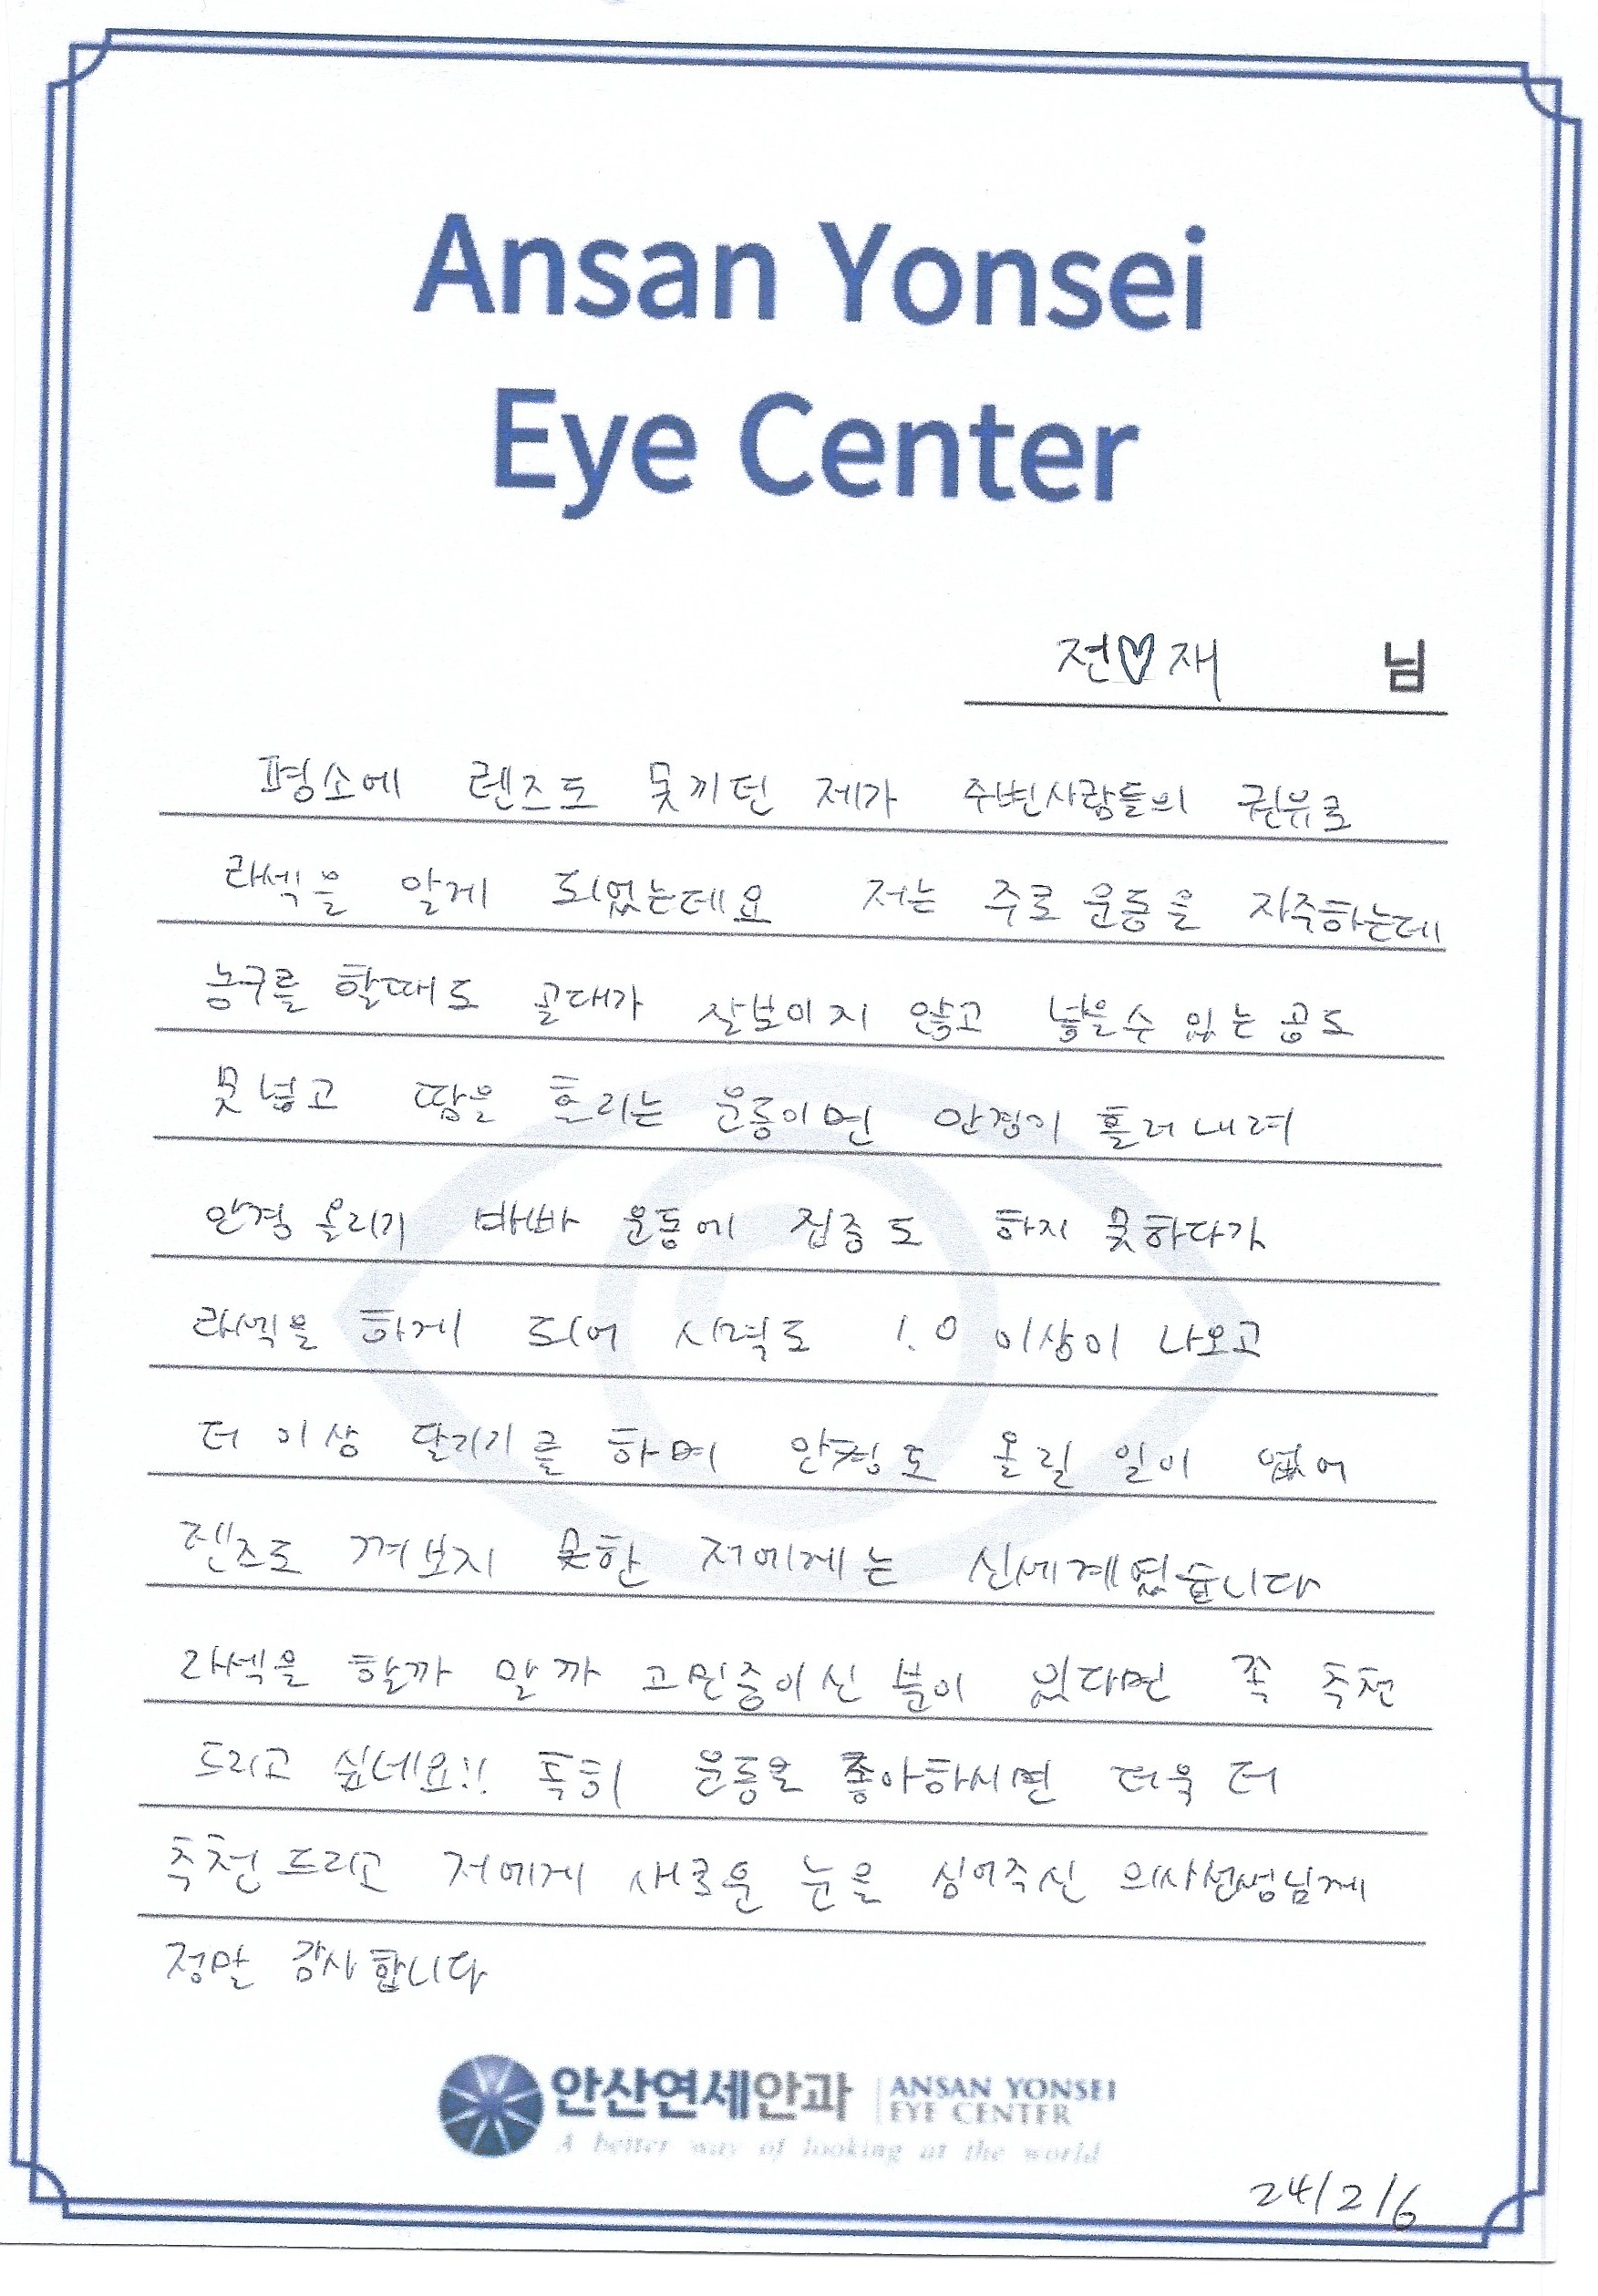 Ansan Yonsei
Eye Center
전♡재 님
평소에 렌즈도 못끼던 제가 주변사람들의 권유로
라섹을 알게 되었는데요 저는 주로 운동을 자주하는데
농구를 할때도 골대가 잘보이지 않고 넣을수 있는 공도
못넣고 땀을 흐리는 운동이면 안경이 흘러내려
안경 올리기 바빠 운동에 집중도 하지 못하다가
라섹을 하게 되어 시력도 1.0 이상이 나오고
더 이상 달리기를 하며 안경도 올릴 일이 없어
렌즈도 껴보지 못한 저에게는 신세계였습니다
라섹을 할까 말까 고민중이신 분이 있다면 꼭 추천
드리고 싶네요!! 특히 운동을 좋아하시면 더욱 더
추천드리고 저에게 새로운 눈을 심어주신 의사선생님께
정말 감사합니다
안산연세안과 ANSAN YONSEI
EYE CENTER
A better way of looking at the world
24/2/6